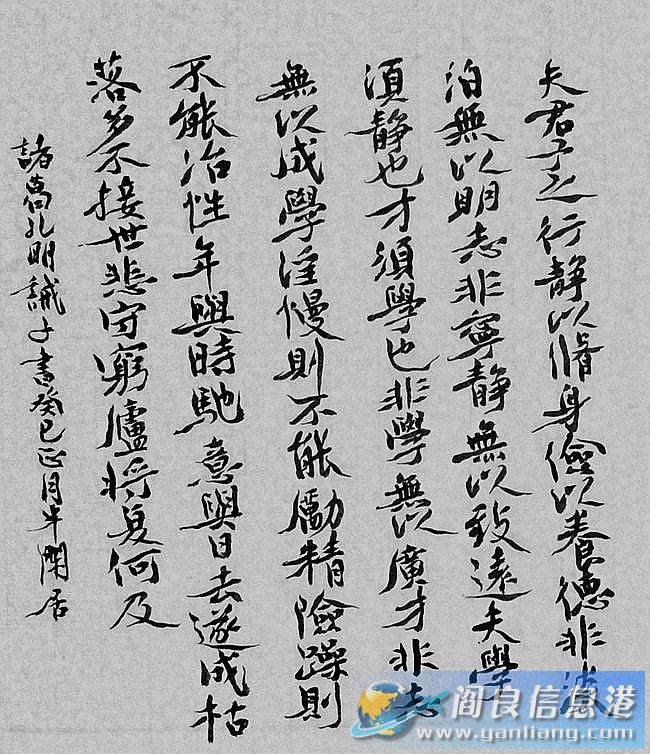 夫君子之行静以脩身儉以養德非澹
泊無以明志非寧静無以致遠夫學
須静也才須學也非學無以廣才非志
無以成學淫慢則不能勵精險躁則
不能治性年與時馳意與日去遂成枯
落多不接世悲守窮廬將复何及
諸葛孔明誡子書癸巳正月半居
阎良信息港
www.yanliang.com